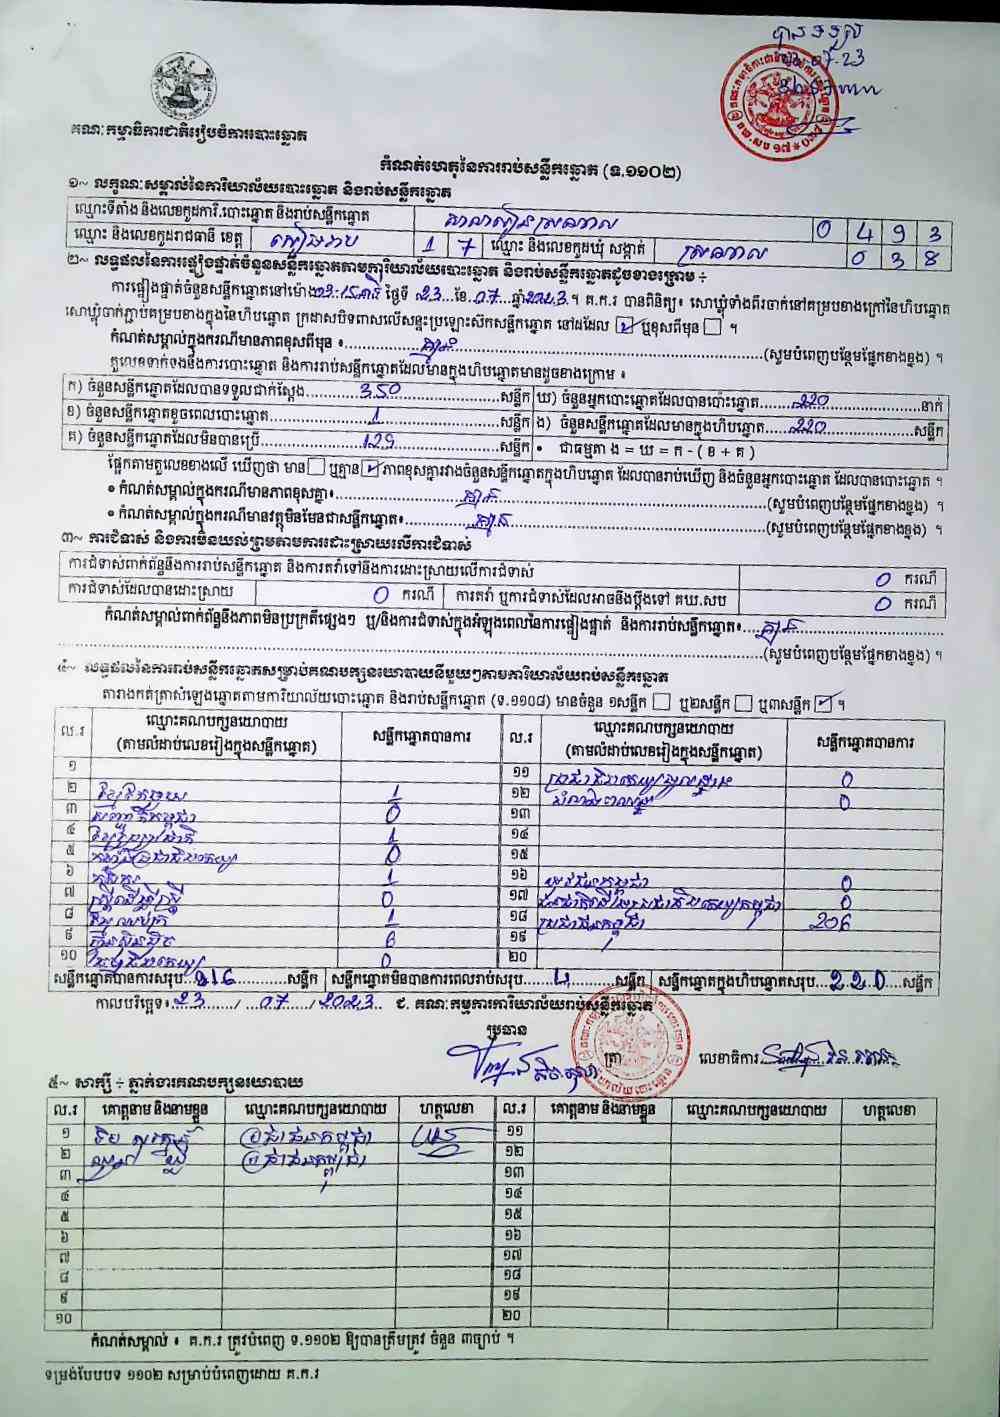 បានទទួល
គណៈកម្មាធិការជាតិរៀបចំការបោះឆ្នោត
កំណត់ហេតុនៃការរាប់សន្លឹកឆ្នោត (ទ.១១០២)
១~ លក្ខណៈសម្គាល់នៃការិយាល័យបោះឆ្នោត និងរាប់សន្លឹកឆ្នោត
ឈ្មោះទីតាំង និងលេខកូដការិ.បោះឆ្នោត និងរាប់សន្លឹកឆ្នោត 0 4 9 3
ឈ្មោះ និងលេខកូដរាជធានី ខេត្ត សៀមរាប 1 7 ឈ្មោះ និងលេខកូដឃុំ សង្កាត់ 0 3 8
២~ លទ្ធផលនៃការផ្ទៀងផ្ទាត់ចំនួនសន្លឹកឆ្នោតតាមការិយាល័យបោះឆ្នោត និងរាប់សន្លឹកឆ្នោតដូចខាងក្រោម ÷
ការផ្ទៀងផ្ទាត់ចំនួនសន្លឹកឆ្នោតនៅម៉ោង ថ្ងៃទី 23 ខែ 07 ឆ្នាំ 2023 ។ គ.ក.រ បានពិនិត្យ៖ សោឃ្លុំទាំងពីរចាក់នៅគម្របខាងក្រៅនៃហិបឆ្នោត
សោឃ្លុំចាក់ភ្ជាប់គម្របខាងក្នុងនៃហិបឆ្នោត ក្រដាសបិទពាសលើសន្ទះប្រឡោះស៊កសន្លឹកឆ្នោត នៅដដែល ✓ ឬខុសពីមុន ។
កំណត់សម្គាល់ក្នុងករណីមានភាពខុសពីមុន ៖ គ្មាន (សូមបំពេញបន្ថែមផ្នែកខាងខ្នង) ។
តួលេខទាក់ទងនឹងការបោះឆ្នោត និងការរាប់សន្លឹកឆ្នោតដែលមានក្នុងហិបឆ្នោតមានដូចខាងក្រោម ៖
ក) ចំនួនសន្លឹកឆ្នោតដែលបានទទួលជាក់ស្តែង 350 សន្លឹក ឃ) ចំនួនអ្នកបោះឆ្នោតដែលបានបោះឆ្នោត 220 នាក់
ខ) ចំនួនសន្លឹកឆ្នោតខូចពេលបោះឆ្នោត 1 សន្លឹក ង) ចំនួនសន្លឹកឆ្នោតដែលមានក្នុងហិបឆ្នោត 220 សន្លឹក
គ) ចំនួនសន្លឹកឆ្នោតដែលមិនបានប្រើ 129 សន្លឹក • ជាធម្មតា ង = ឃ = ក - ( ខ + គ )
ផ្អែកតាមតួលេខខាងលើ ឃើញថា មាន ឬគ្មាន ✓ ភាពខុសគ្នារវាងចំនួនសន្លឹកឆ្នោតក្នុងហិបឆ្នោត ដែលបានរាប់ឃើញ និងចំនួនអ្នកបោះឆ្នោត ដែលបានបោះឆ្នោត ។
• កំណត់សម្គាល់ក្នុងករណីមានភាពខុសគ្នា៖ គ្មាន (សូមបំពេញបន្ថែមផ្នែកខាងខ្នង) ។
• កំណត់សម្គាល់ក្នុងករណីមានវត្ថុមិនមែនជាសន្លឹកឆ្នោត៖ គ្មាន (សូមបំពេញបន្ថែមផ្នែកខាងខ្នង) ។
៣~ ការជំទាស់ និងការមិនយល់ព្រមតាមការដោះស្រាយលើការជំទាស់
ការជំទាស់ពាក់ព័ន្ធនឹងការរាប់សន្លឹកឆ្នោត និងការតវ៉ាទៅនឹងការដោះស្រាយលើការជំទាស់ 0 ករណី
ការជំទាស់ដែលបានដោះស្រាយ 0 ករណី ការតវ៉ា ឬការជំទាស់ដែលអាចនឹងប្តឹងទៅ គឃ.សប 0 ករណី
កំណត់សម្គាល់ពាក់ព័ន្ធនឹងភាពមិនប្រក្រតីផ្សេងៗ ឬ/និងការជំទាស់ក្នុងអំឡុងពេលនៃការផ្ទៀងផ្ទាត់ និងការរាប់សន្លឹកឆ្នោត៖ គ្មាន
(សូមបំពេញបន្ថែមផ្នែកខាងខ្នង) ។
៤~ លទ្ធផលនៃការរាប់សន្លឹកឆ្នោតសម្រាប់គណបក្សនយោបាយនីមួយៗតាមការិយាល័យរាប់សន្លឹកឆ្នោត
តារាងកត់ត្រាសំឡេងឆ្នោតតាមការិយាល័យបោះឆ្នោត និងរាប់សន្លឹកឆ្នោត (ទ.១១០៨) មានចំនួន ១សន្លឹក ឬ២សន្លឹក ឬ៣សន្លឹក ✓ ។
ល.រ ឈ្មោះគណបក្សនយោបាយ (តាមលំដាប់លេខរៀងក្នុងសន្លឹកឆ្នោត) សន្លឹកឆ្នោតបានការ ល.រ ឈ្មោះគណបក្សនយោបាយ (តាមលំដាប់លេខរៀងក្នុងសន្លឹកឆ្នោត) សន្លឹកឆ្នោតបានការ
១ ១១ 0
២ 1 ១២ 0
៣ 0 ១៣
៤ 1 ១៤
៥ 0 ១៥
៦ 1 ១៦ 0
៧ 0 ១៧ 0
៨ 1 ១៨ ប្រជាជនកម្ពុជា 206
៩ ១៩
១០ 0 ២០
សន្លឹកឆ្នោតបានការសរុប 216 សន្លឹក សន្លឹកឆ្នោតមិនបានការពេលរាប់សរុប 4 សន្លឹក សន្លឹកឆ្នោតក្នុងហិបឆ្នោតសរុប 220 សន្លឹក
កាលបរិច្ឆេទ៖ 23 / 07 / 2023 ជ. គណៈកម្មការការិយាល័យរាប់សន្លឹកឆ្នោត
ប្រធាន
ត្រា លេខាធិការ
៥~ សាក្សី ÷ ភ្នាក់ងារគណបក្សនយោបាយ
ល.រ គោត្តនាម និងនាមខ្លួន ឈ្មោះគណបក្សនយោបាយ ហត្ថលេខា ល.រ គោត្តនាម និងនាមខ្លួន ឈ្មោះគណបក្សនយោបាយ ហត្ថលេខា
១ ប្រជាជនកម្ពុជា ១១
២ ប្រជាជនកម្ពុជា ១២
៣ ១៣
៤ ១៤
៥ ១៥
៦ ១៦
៧ ១៧
៨ ១៨
៩ ១៩
១០ ២០
កំណត់សម្គាល់ ៖ គ.ក.រ ត្រូវបំពេញ ទ.១១០២ ឱ្យបានត្រឹមត្រូវ ចំនួន ៣ច្បាប់ ។
ទម្រង់បែបបទ ១១០២ សម្រាប់បំពេញដោយ គ.ក.រ